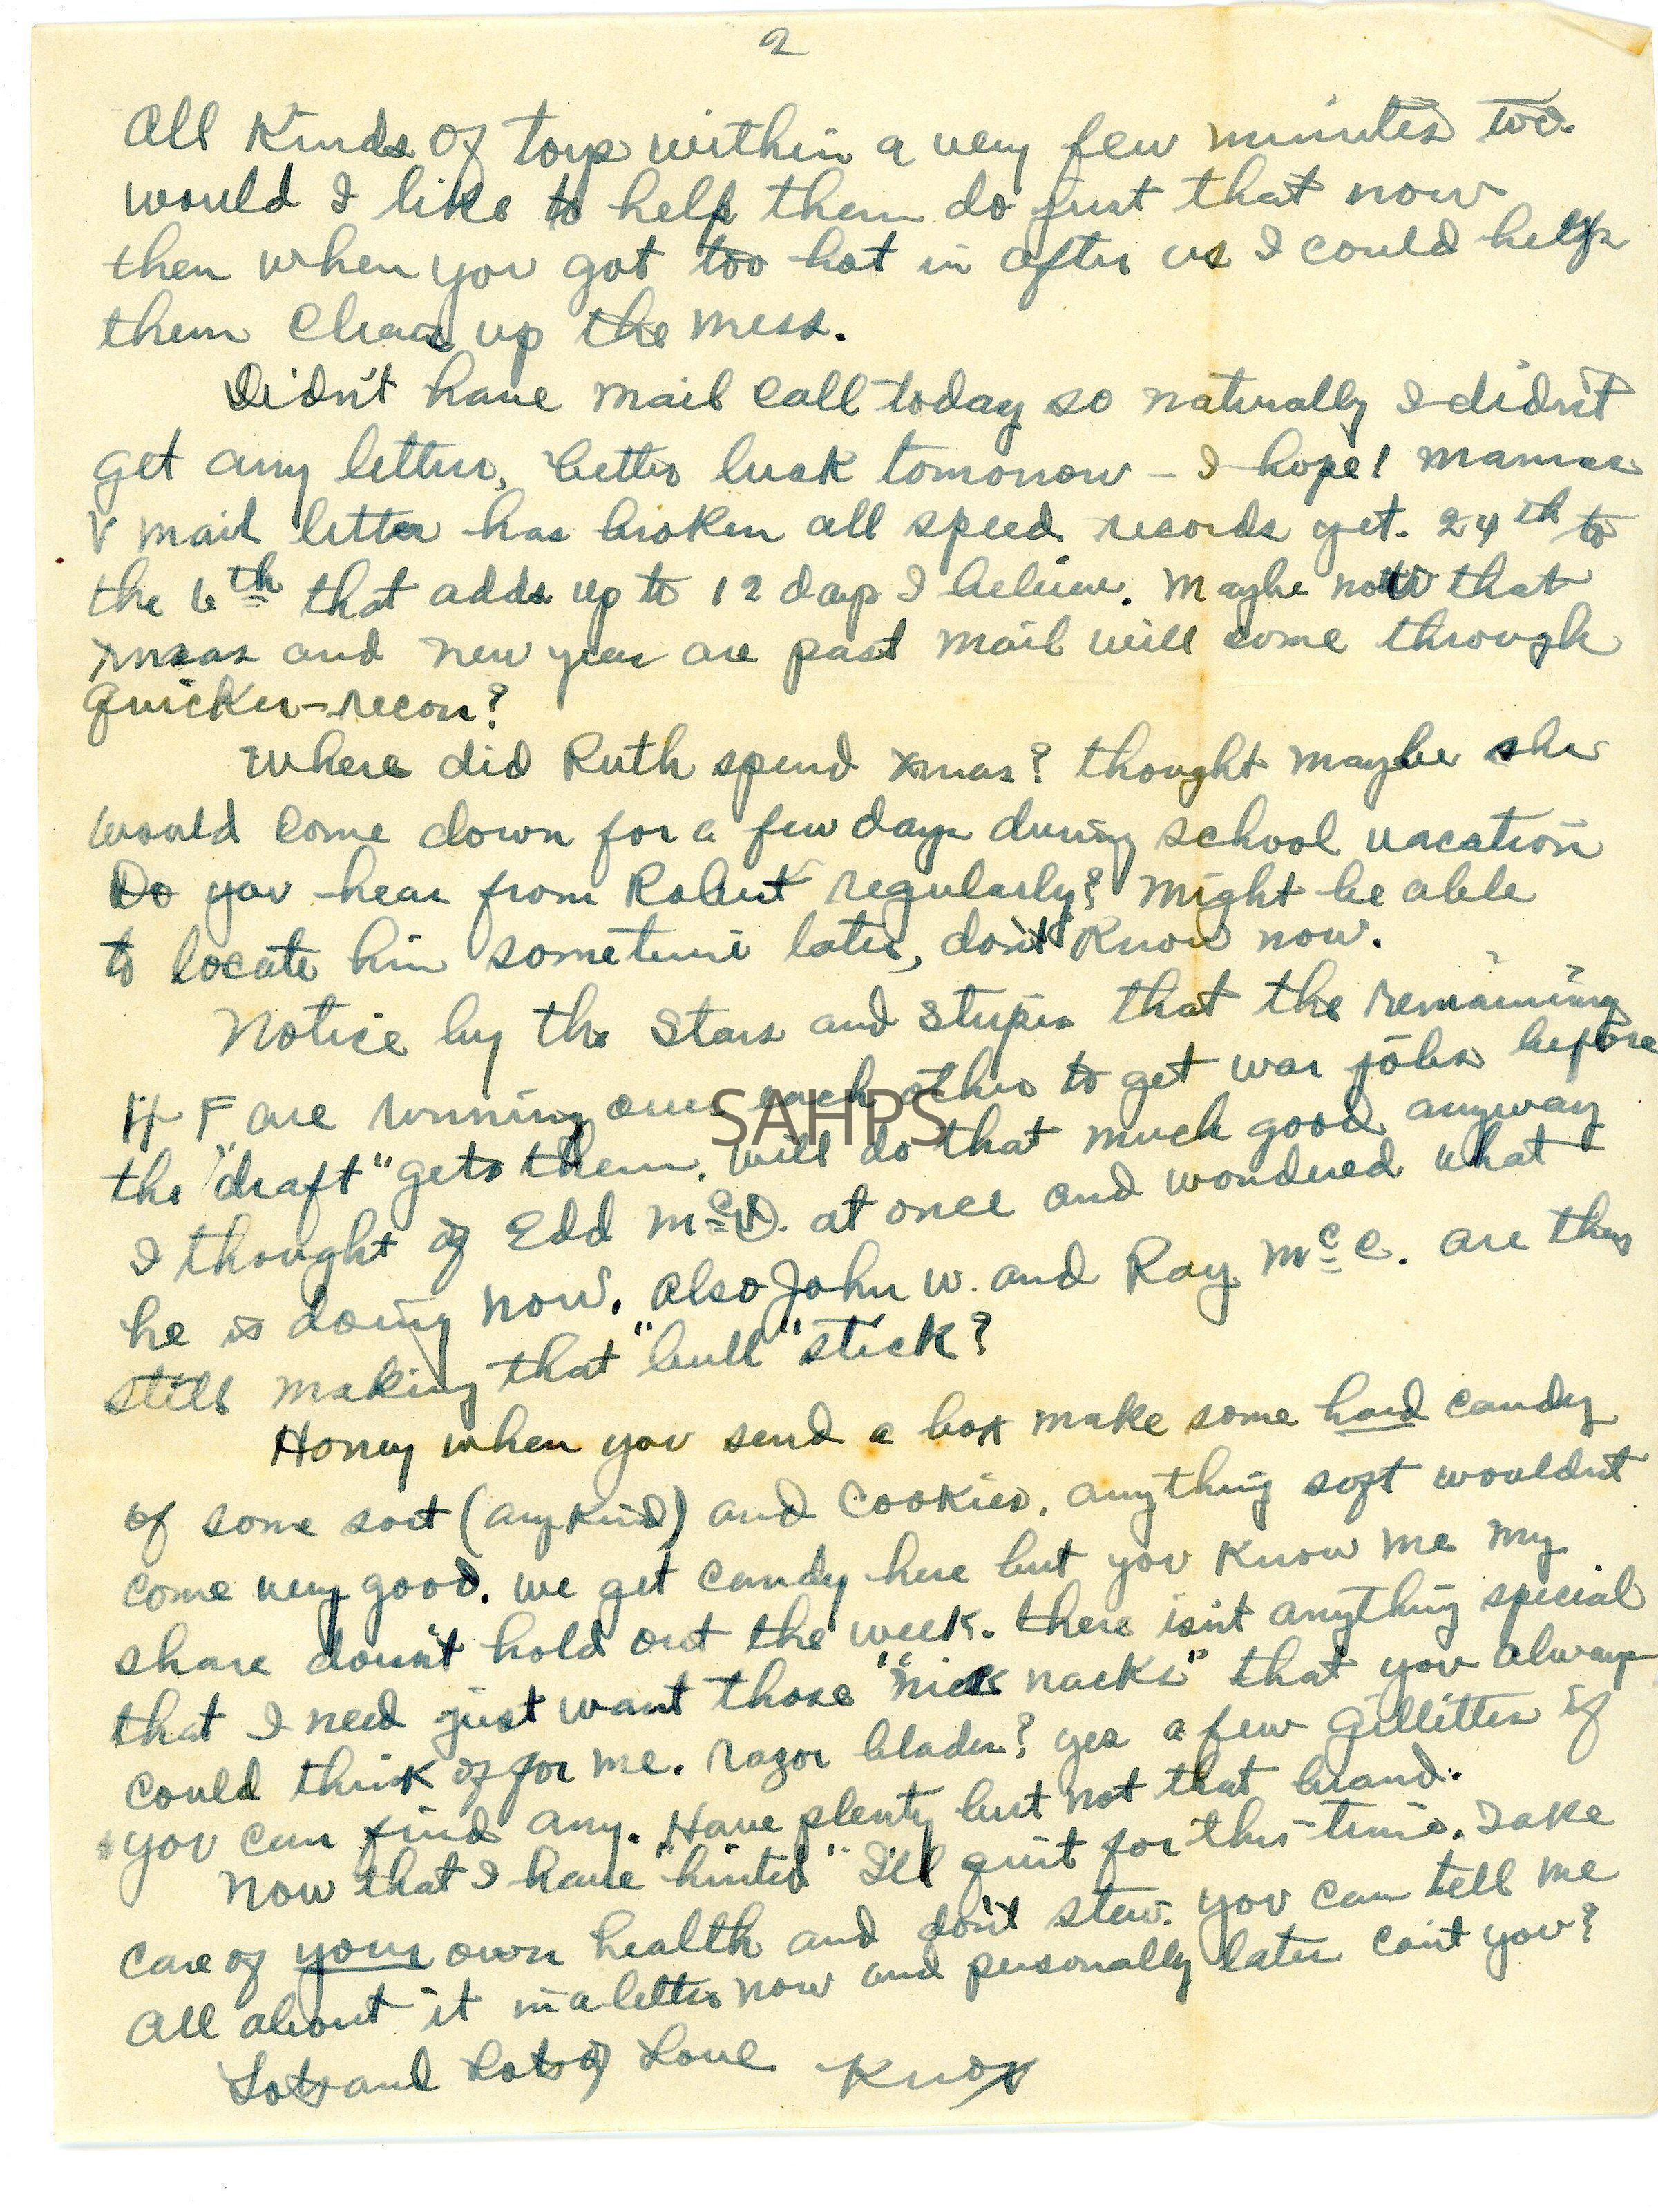 2
All Kinds of toys within a very few minutes too.
would I like to help them do just that now
then when you got too hot in after us I could help
them Clean up the mess.
Didn't have mail call today so naturally I didn't
get any letters, better luck tomorrow - I hope! mamas
V mail letter has broken all speed records yet. 24th to
the 6th that adds up to 12 days I believe. Maybe now that
xmas and new year are past mail will come through
quicker - recon?
Where did Ruth spend xmas? thought maybe she
would come down for a few days during school vacation
Do you hear from Robert regularly? Might be able
to locate him sometime later, don't know now.
Notice by the Stars and Stripes that the remaining
4 F are running over each other to get war jobs before
the "draft" gets them. Will do that much good anyway
I thought of Edd McD. at once and wondered what
he is doing now. Also John W. and Ray McC. are they
still making that "bull" stick?
Honey when you send a box make some hard candy
of some sort (any kind) and Cookies. anything soft wouldn't
come very good. we get candy here but you know me my
share doesn't hold out the week. there isn't anything special
that I need just want those "nick nacks" that you always
could think of for me. razor blades? yes a few gillittes if
you can find any. Have plenty but not that brand.
Now that I have "hinted" I'll quit for this time. Take
care of your own health and don't stew. you can tell me
all about it in a letter now and personally later can't you?
Lots and Lots of Love Knox
SAHPS